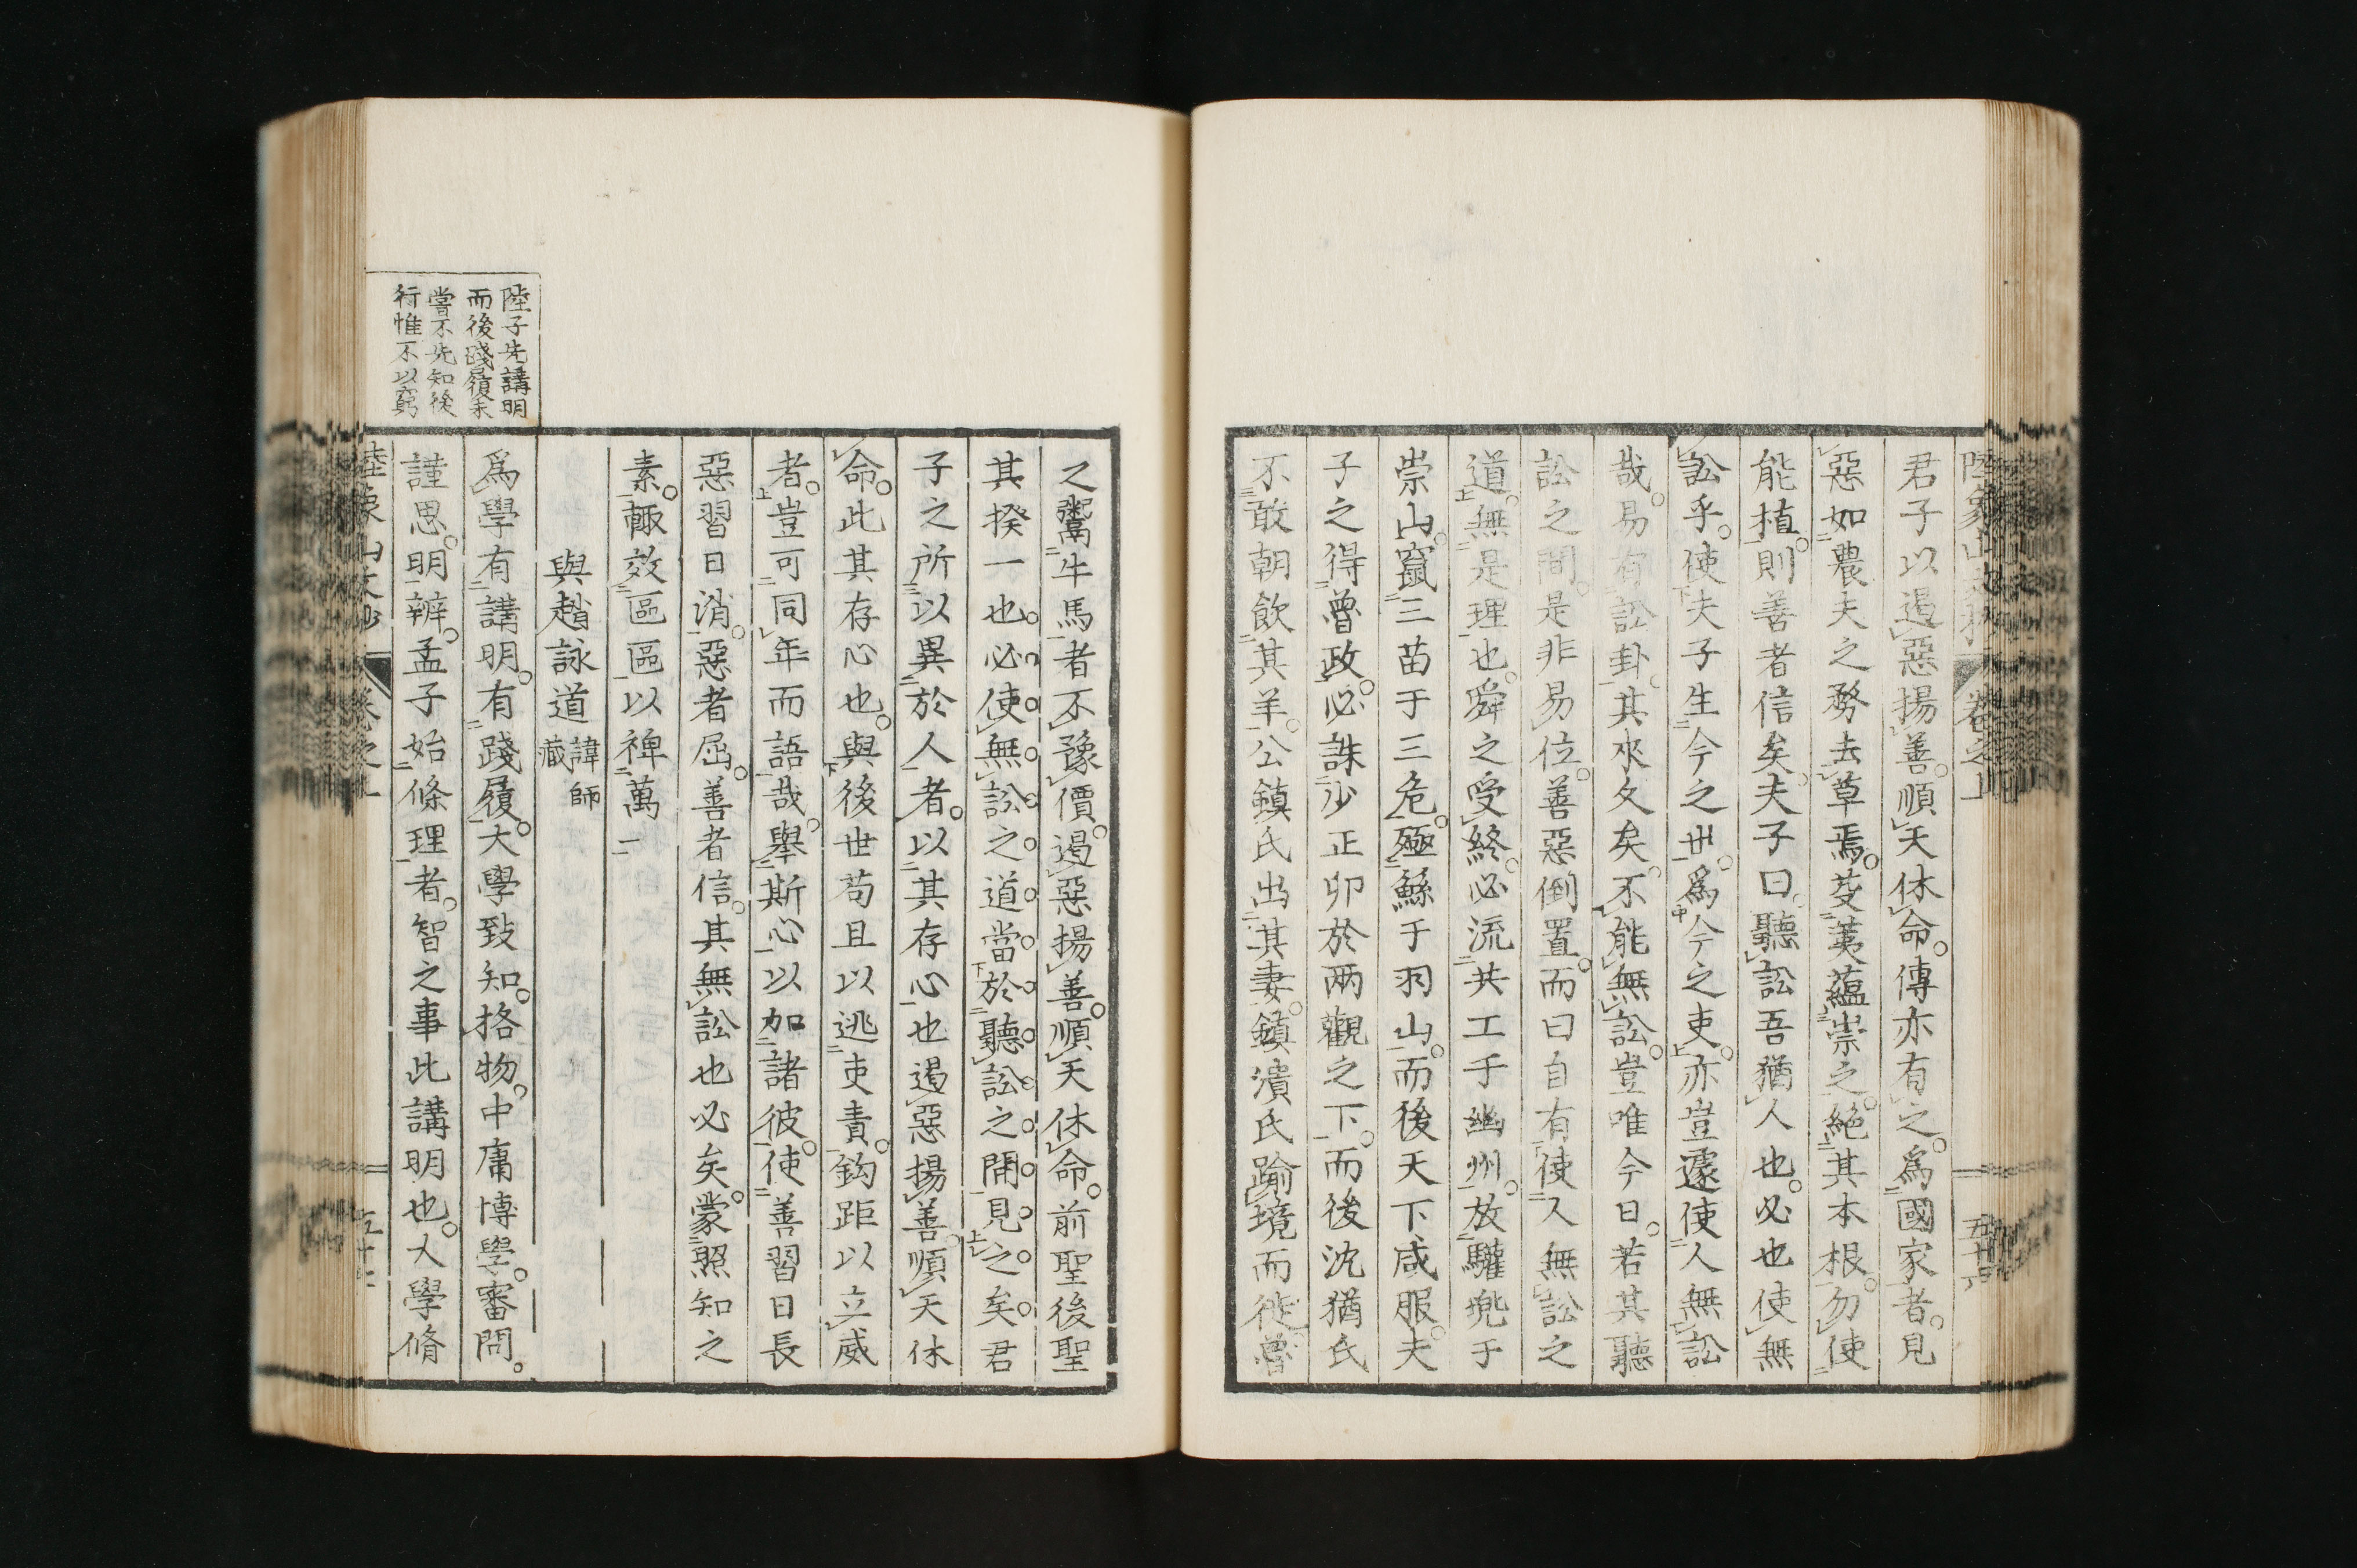 君子以遏惡揚善順天休命傳亦有之爲國家者見
惡如農夫之務去草焉芟荑蘊崇之絕其本根勿使
能植則善者信矣夫子曰聽訟吾猶人也必也使無
訟乎使夫子生今之世爲今之吏亦豈遽使人無訟
哉易有訟卦其來久矣不能無訟豈唯今日若其聽
訟之間是非易位善惡倒置而曰自有使人無訟之
道無是理也舜之受終必流共工于幽州放驩兜于
崇山竄三苗于三危殛鯀于羽山而後天下咸服夫
子之得魯政必誅少正卯於兩觀之下而後沈猶氏
不敢朝飲其羊公鎮氏出其妻鎮潰氏踰境而徙魯
之鬻牛馬者不豫價遏惡揚善順天休命前聖後聖
其揆一也必使無訟之道當於聽訟之間見之矣君
子之所以異於人者以其存心也遏惡揚善順天休
命此其存心也與後世苟且以逃吏責鈎距以立威
者豈可同年而語哉舉斯心以加諸彼使善習日長
惡習日消惡者屈善者信其無訟也必矣蒙照知之
素輙效區區以裨萬一
與趙詠道 諱師藏
爲學有講明有踐履大學致知格物中庸博學審問
謹思明辨孟子始條理者智之事此講明也大學脩
陸子先講明
而後踐履未
嘗不先知後
行惟不以窮
陸象山文抄 卷之上